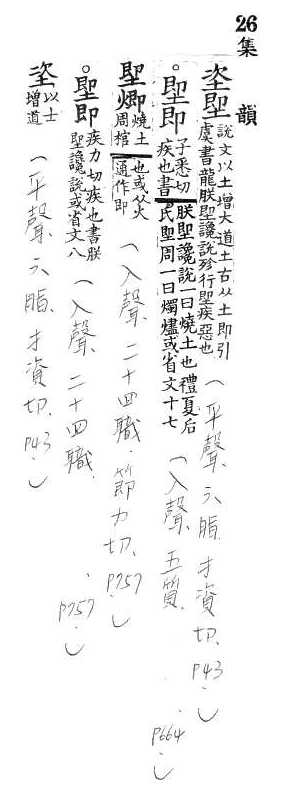 26
集韻
垐堲 說文以土增大道上古从土即引虞書龍朕堲讒說殄行堲疾惡也(平聲、六脂、才資切、P43.)
。堲即 子悉切疾也書朕堲讒說一曰燒土也禮夏后氏堲周一曰燭燼或省文十七(入聲、五質、P664.)
堲㷅 燒土也或从火周棺通作即(入聲、二十四職、節力切、P757.)
。堲即 疾力切疾也書朕堲讒說或省文八(入聲、二十四職、P757.)
垐 以土增道(平聲、六脂、才資切、P43.)